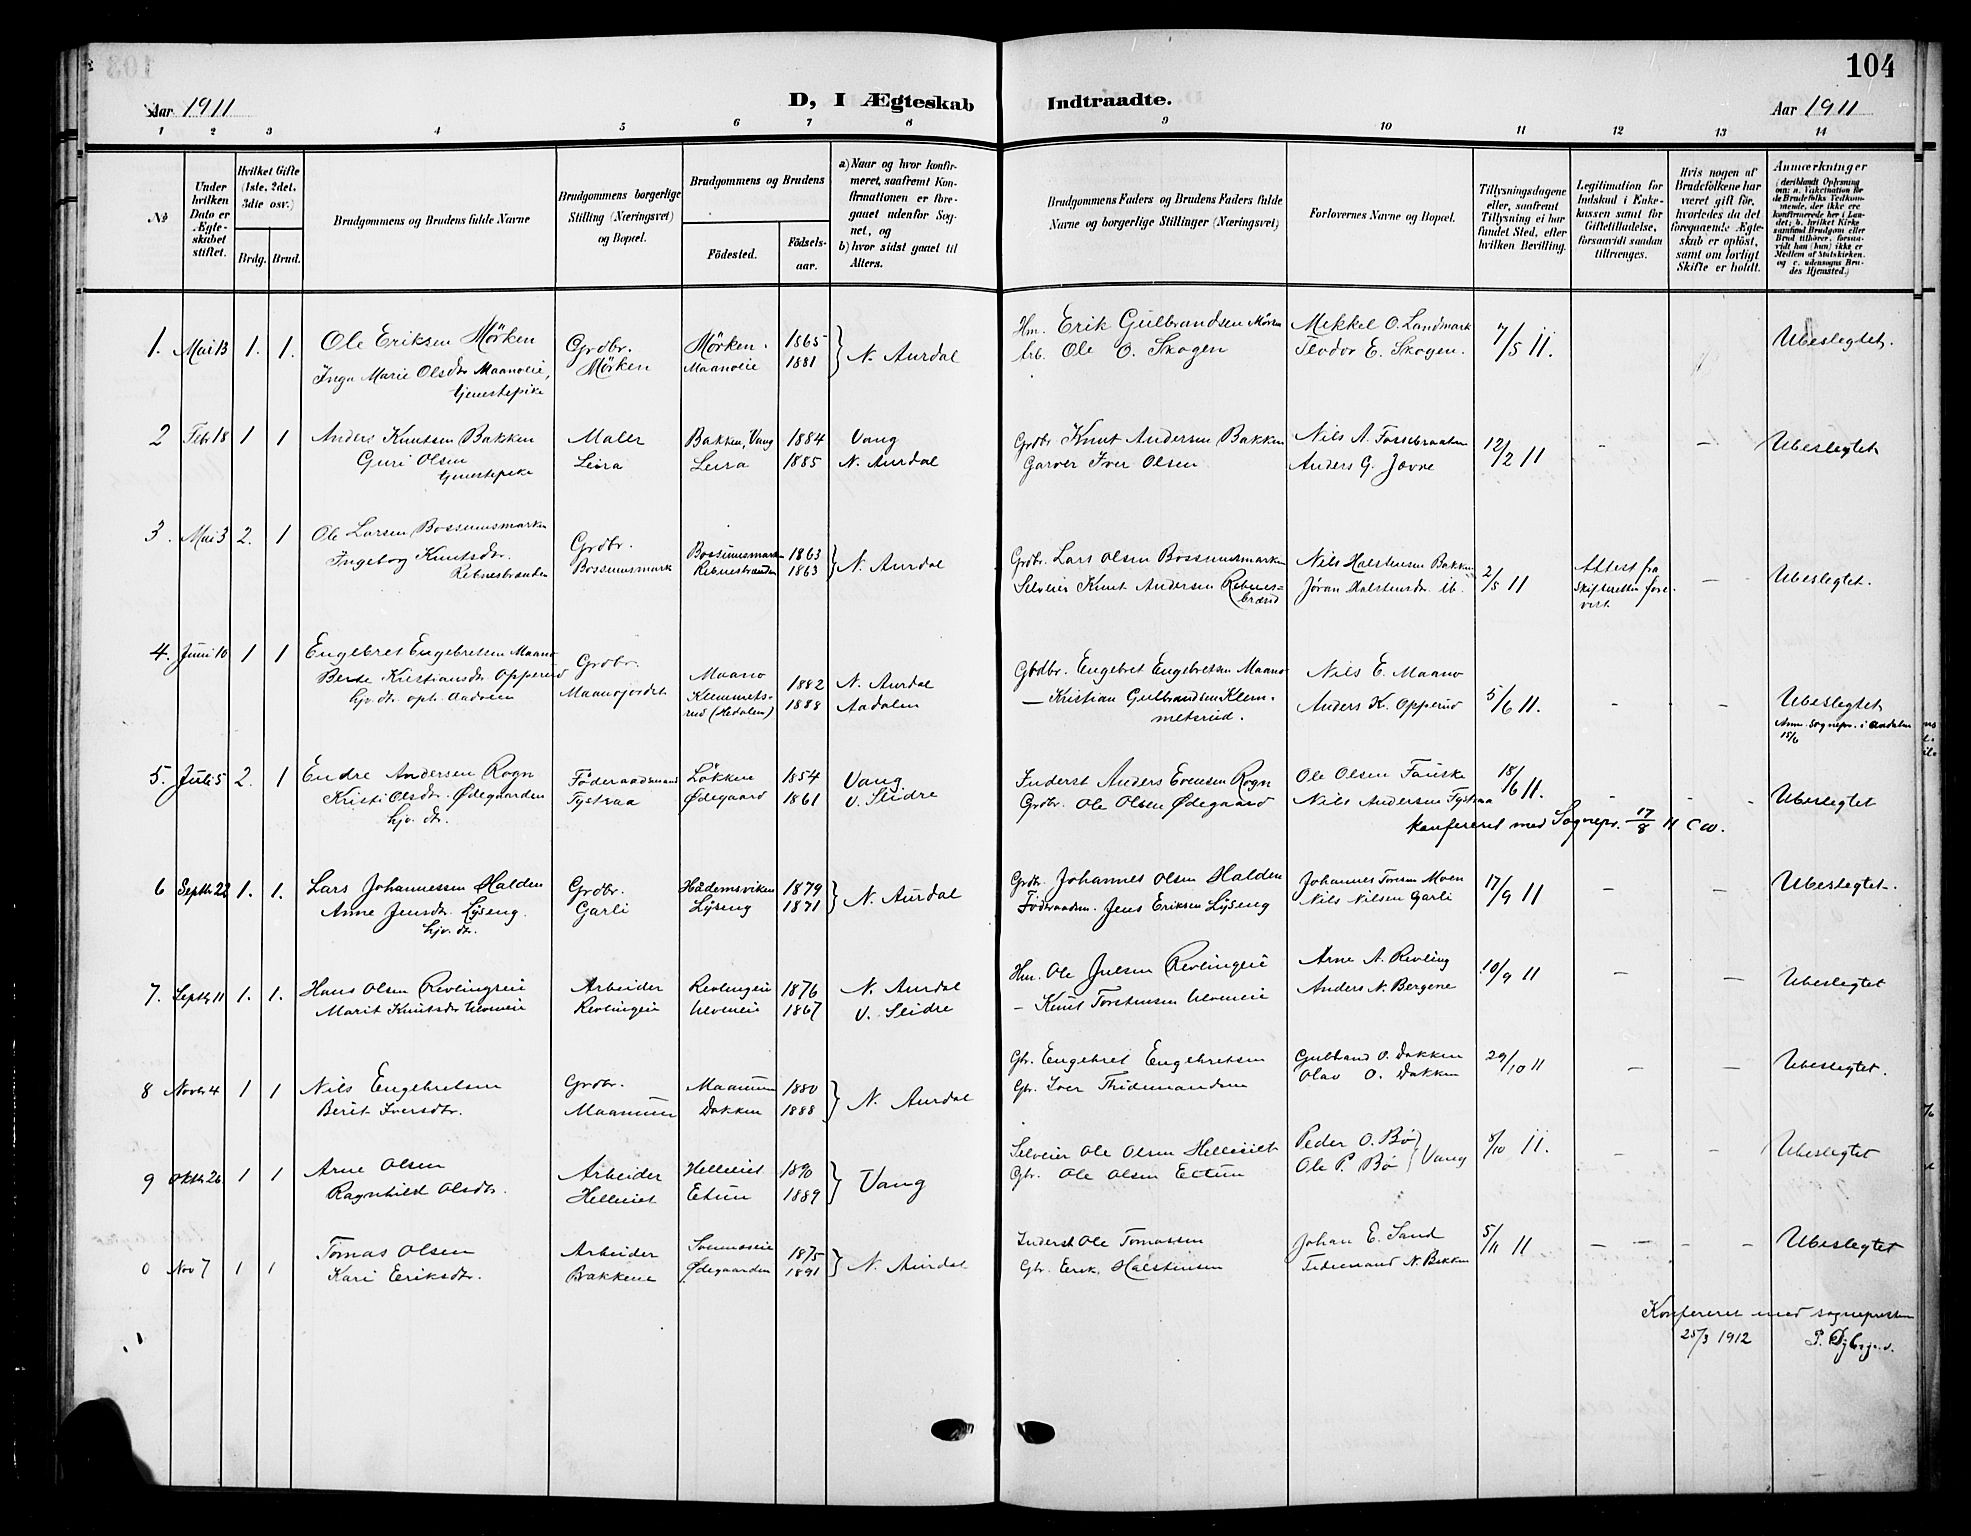 104
Aar 1911
D, I Ægteskab Indtraadte.
Aar 1911
1 2 3 4 5 6 7 8 9 10 11 12 13 14
№
Under hvilken Dato er Ægteskabet stiftet.
Hvilket Gifte (1ste, 2det, 3die osv.)
Brdg. Brud.
Brudgommens og Brudens fulde Navne
Brudgommens borgerlige Stilling (Næringsvei) og Bopæl.
Brudgommens og Brudens
Födested.
Födselsaar.
a) Naar og hvor konfirmeret, saafremt Konfirmationen er foregaaet udenfor Sognet, og
b) hvor sidst gaaet til Alters.
Brudgommens Faders og Brudens Faders fulde Navne og borgerlige Stillinger (Næringsvei)
Forlovernes Navne og Bopæl.
Tillysningsdagene eller, saafremt Tillysning ei har fundet Sted, efter hvilken Bevilling.
Legitimation for Indskud i Enkekassen samt for Giftetilladelse, forsaavidt saadan tiltrænges.
Hvis nogen af Brudefolkene har været gift för, hvorledes da det foregaaende Ægteskab er oplöst, samt om lovligt Skifte er holdt.
Anmærkninger
(deriblandt Oplysning om: a. Vakcination for de Brudefolks Vedkommende, der ikke ere konfirmerede her i Landet; b. hvilket Kirkesamfund Brudgom eller Brud tilhörer, forsaavidt han (hun) ikke er Medlem af Statskirken, og c. udensogns Brudes Hjemsted.)
1. Mai 13 1. 1. Ole Eriksen Mörken Grdbr. Mörken. 1865 N. Aurdal Hm. Erik Gulbrandsen Mörken Mekkel O. Landmark 7/5 11. Ubeslegtet.
Inga Marie Olsdtr Maanoeie, Mörken Maanoeie 1881 Arb. Ole O. Skogen Teodor E. Skogen.
tjenestepike
2 Febr 18 1 1 Anders Knutsen Bakken Maler Bakken, Vang 1884 Vang Grdbr Knut Andersen Bakken Nils A. Fossbraaten 12/2 11 – – Ubeslegtet
Guri Olsen Leira Leira 1885 N. Aurdal Garver Iver Olsen Anders G. Jövne
tjenestepike
3. Mai 3 2. 1 Ole Larsen Bossumsmarken Grdbr. Bossumsmarken 1863 N. Aurdal Grdbr. Lars Olsen Bossumsmarken Nils Halstensen Bakken 2/5 11 Attest fra – Ubeslegtet.
Ingebog Knutsdtr. Bossumsmark Rebnesbrænden 1863 Selveier Knut Andersen Rebnesbrænd Jöran Halstensdtr. ib. skifteretten forevist.
Rebnesbrænden
4. Juni 10 1 1 Engebret Engebretsen Maano Grdbr. Maano 1882 N. Aurdal Gbdbr. Engebret Engebretsen Maano Nils E. Maano 5/6 11. – – Ubeslegtet
Berte Kristiansdtr Opperud Maanojordet Klemmetsrud (Hedalen) 1888 Aadalen – Kristian Gulbrandsen Klemmetsrud. Anders K. Opperud Anm. sognepr. i Aadalen 15/6
hjv. dtr. oph. Aadalen
5. Juli 5 2. 1 Endre Andersen Rogn Föderaadsmand Lökken 1854 Vang Inderst Anders Evensen Rogn Ole Olsen Fauske 18/6 11. – – – Ubeslegtet
Kristi Olsdtr. Ødegaarden Fystraa Ødegaard 1861 V. Slidre Grdbr. Ole Olsen Ødegaard Nils Andersen Fystraa
hjv. dtr. konfereret med Sognepr. 17/8 11 CW.
6 Septbr 22 1. 1. Lars Johannessen Halden Grdbr. Hådemsviken 1879 N. Aurdal Grdbr. Johannes Olsen Halden Johannes Toresen Moen 17/9 11 – – Ubeslegtet.
Anne Jensdtr. Lÿseng. Garli Lÿseng 1871 Föderaadsm. Jens Eriksen Lÿseng Nils Nilsen Garli
hjv. dtr.
7. Septbr 11 1. 1. Hans Olsen Revlingeie Arbeider Revlingeie 1876 N. Aurdal Hm. Ole Julsen Revlingeie Arne A. Revling 10/9 11 – – Ubeslegtet
Marit Knutsdtr Ulveneie Revlingeie Ulveneie 1867 V. Slidre – Knut Torstensen Ulveneie Anders N. Bergene
8 Novbr 4 1 1 Nils Engebretsen Grdbr. Maanum 1880 N. Aurdal Gbr. Engebret Engebretsen Gulbrand O. Dokken 29/10 11 – – Ubeslegtet.
Berit Iversdtr. Maanum Dokken 1888 Gbr. Iver Thidemandsen Olav O. Dokken
9 Oktbr 26 1 1 Arne Olsen Arbeider Helleiet 1890 Vang Selveier Ole Olsen Helleiet Peder O. Bö Vang 8/10 11. Ubeslegtet
Ragnhild Olsdtr. Helleiet Ettun 1889 Gbr. Ole Olsen Ettun Ole P. Bö
0 Nov 7 1 1 Tomas Olsen Arbeider 1875 N. Aurdal Inderst Ole Tomassen Johan E. Sand 5/11 11 – – – – Ubeslegtet
Kari Eriksdtr. Bakkene Ødegaarden 1891 Gbr. Erik Halstensen Ferdinand N. Bakken
Konfereret med sognepresten
25/3 1912